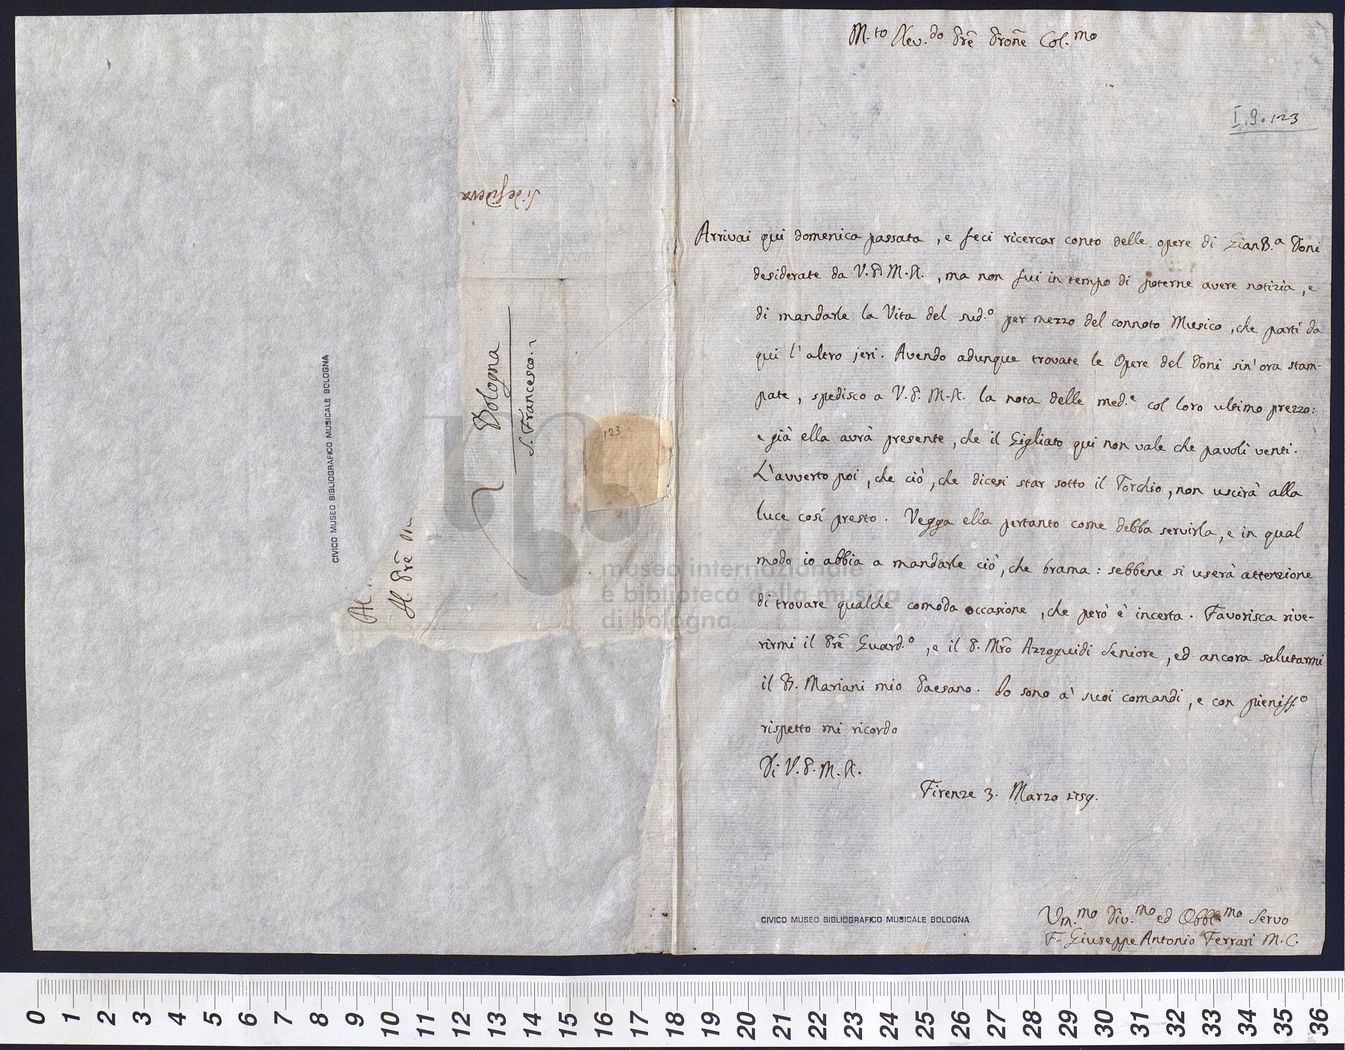 M.to Rev.do Pre Prone Col.mo
I.9.123
Arrivai qui domenica passata, e feci ricercar conto delle opere di GianB.a Doni
desiderate da V.P.M.R., ma non fui in tempo di poterne avere notizia, e
di mandarle la Vita del sud.o per mezzo del connoto Musico, che partì da
qui l'altro jeri. Avendo adunque trovate le Opere del Doni sin'ora stam-
pate, spedisco a V.P.M.R. la nota delle med.e col loro ultimo prezzo:
e già ella avrà presente, che il Gigliato qui non vale che pavoli venti.
L'avverto poi, che ciò, che dicesi star sotto il Torchio, non uscirà alla
luce così presto. Vegga ella pertanto come debba servirla, e in qual
modo io abbia a mandarle ciò, che brama: sebbene si userà attenzione
di trovare qualche comoda occasione, che però è incerta. Favorisca rive-
rirmi il Pre Guard.o, e il P. Mro Azzoguidi Seniore, ed ancora salutarmi
il P. Mariani mio Paesano. Io sono a' suoi comandi, e con pieniss.o
rispetto mi ricordo
Di V.P.M.R.
Firenze 3. Marzo 1759.
Um.mo Div.mo ed Obbl.mo Servo
F. Giuseppe Antonio Ferrari M.C.
CIVICO MUSEO BIBLIOGRAFICO MUSICALE BOLOGNA
Si desidera
Al
Al Pre
Bologna
S. Francesco
123
CIVICO MUSEO BIBLIOGRAFICO MUSICALE BOLOGNA
museo internazionale
e biblioteca della musica
di bologna
0 1 2 3 4 5 6 7 8 9 10 11 12 13 14 15 16 17 18 19 20 21 22 23 24 25 26 27 28 29 30 31 32 33 34 35 36